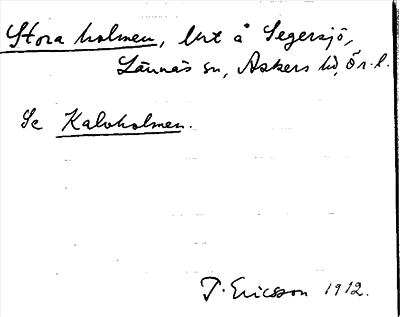 Stora holmen, lht å Segersjö,
Lännäs sn, Askers hd, Ör. l.
Se Kalvholmen.
T. Ericsson 1912.